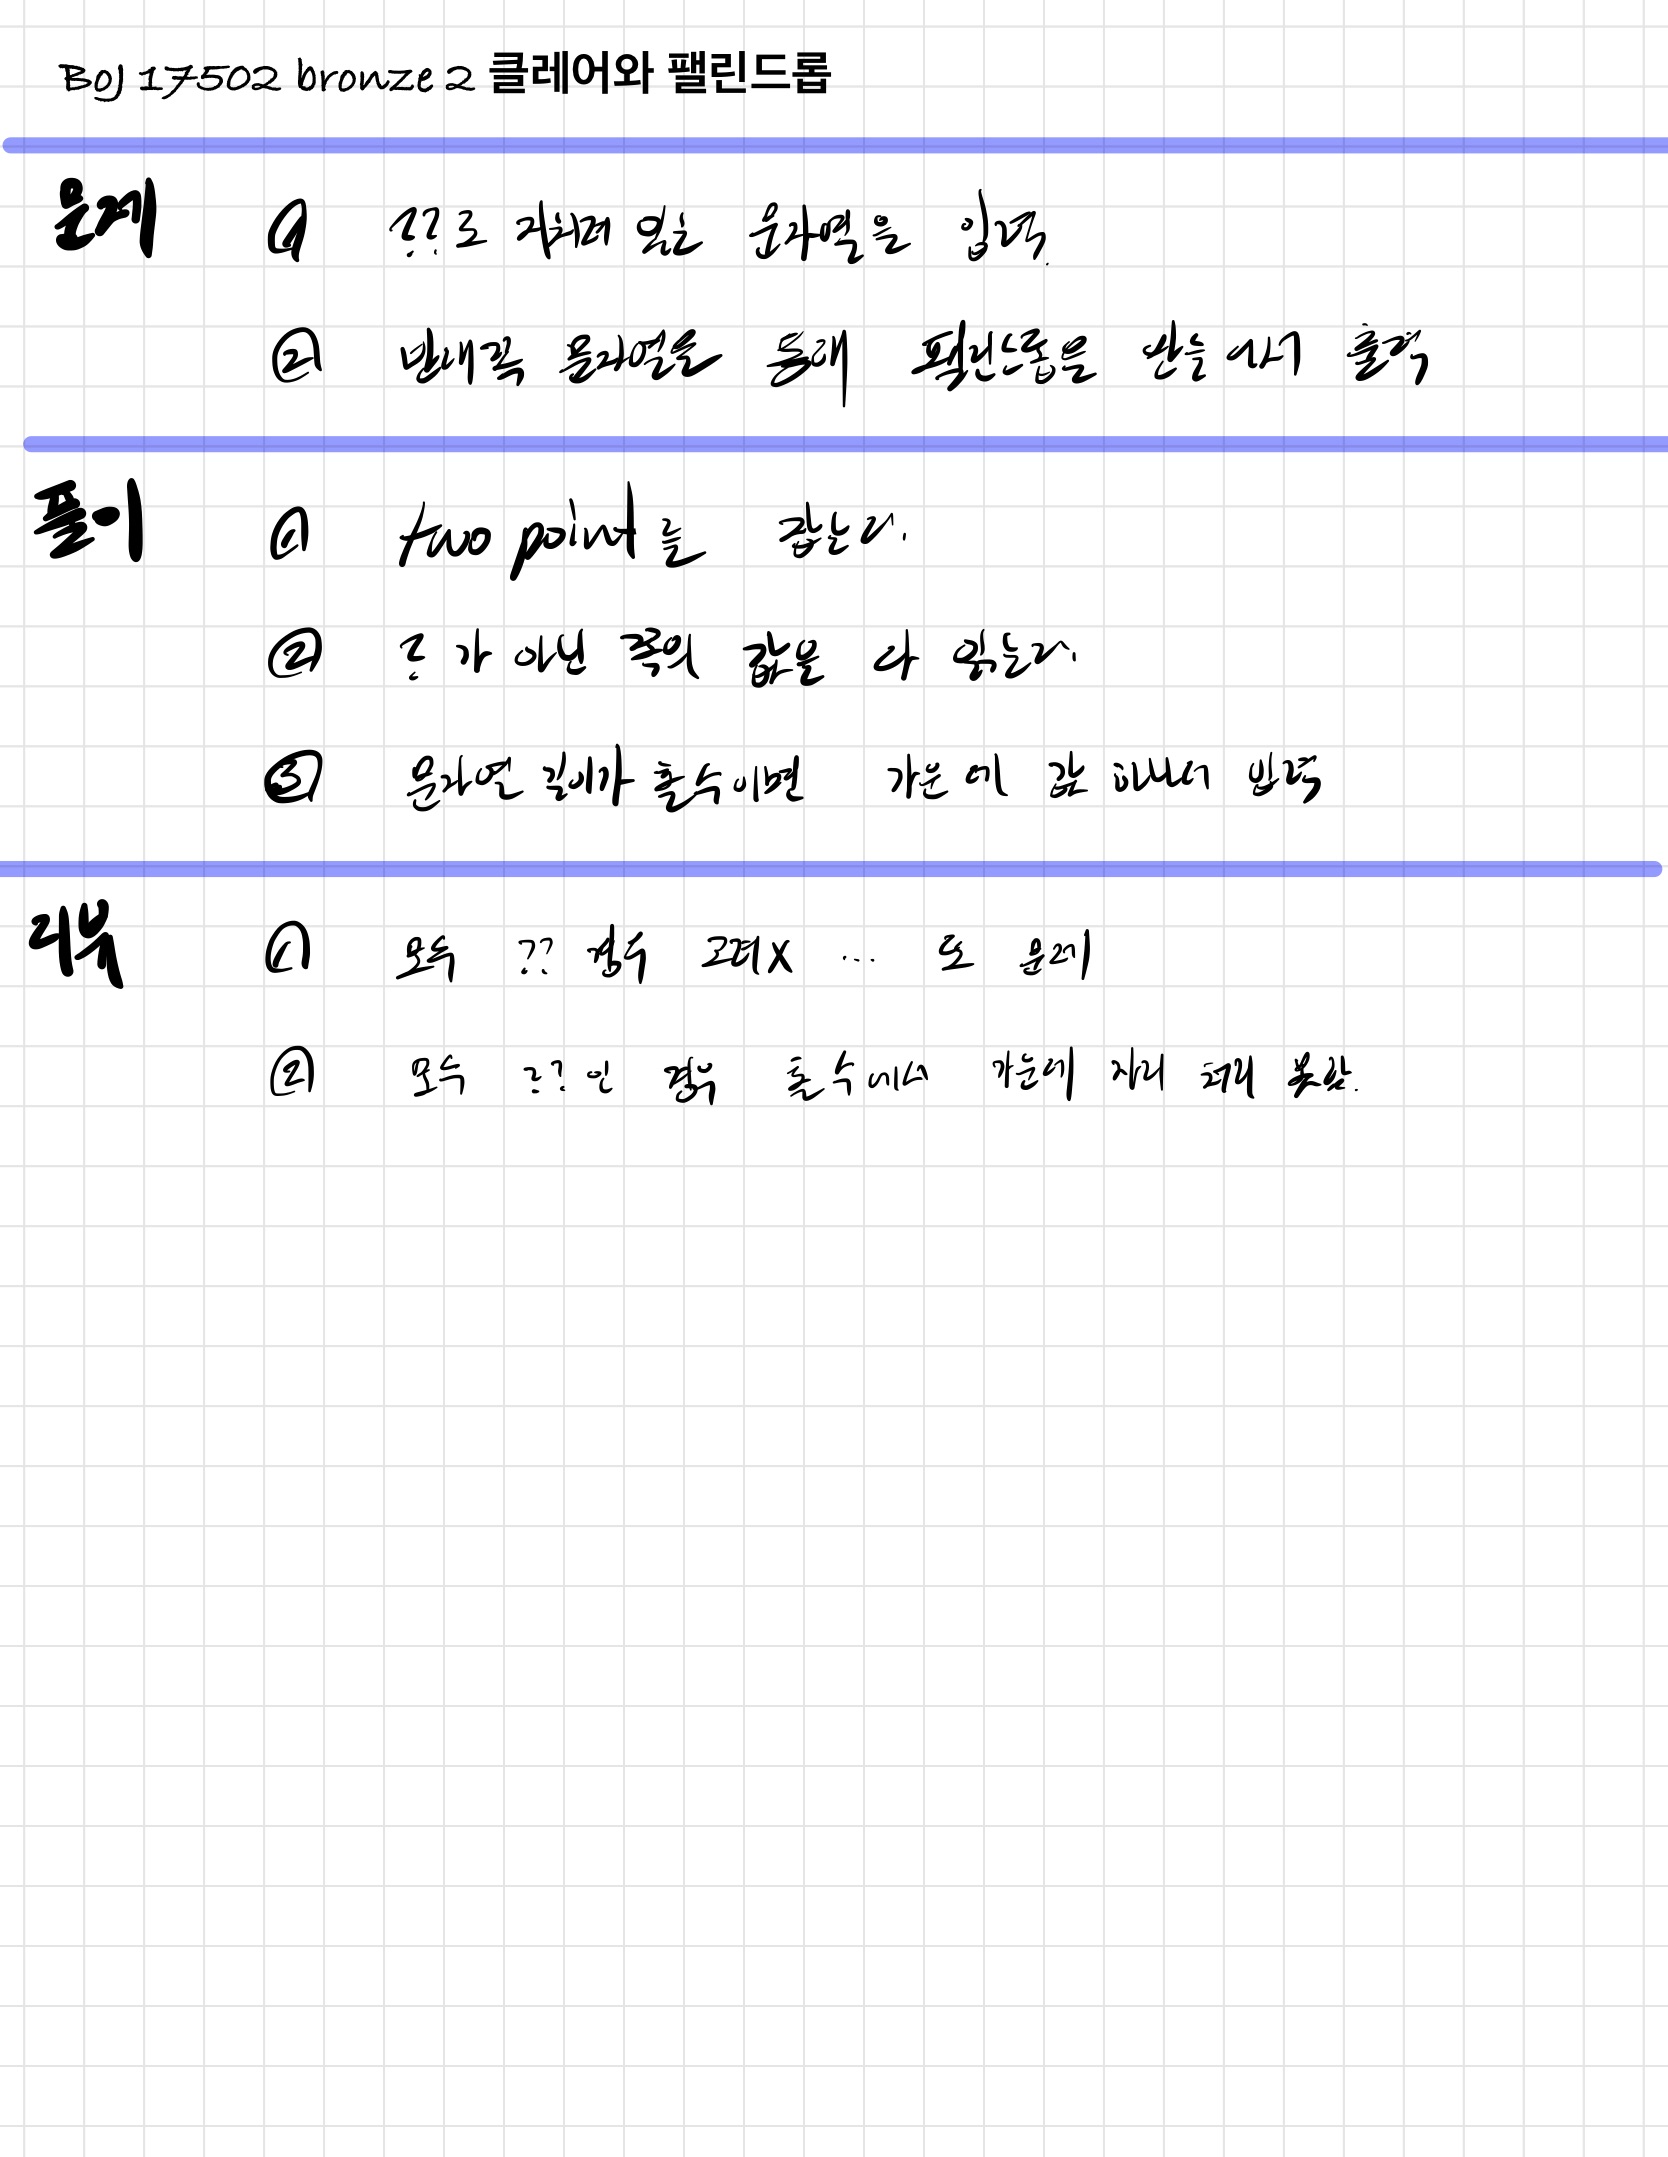 BOJ 17502 bronze 2 클레어와 팰린드롬
문제 ① ??로 지워져 있는 문자열을 입력.
② 반대쪽 문자열을 통해 팰린드롬을 만들어서 출력
풀이 ① two point를 잡는다.
② ?가 아닌 쪽의 값을 다 읽는다.
③ 문자열 길이가 홀수이면 가운데 값 하나더 입력
리뷰 ① 모두 ?? 경우 고려X ... 또 문제
② 모두 ??인 경우 홀수에서 가운데 자리 처리 못함.